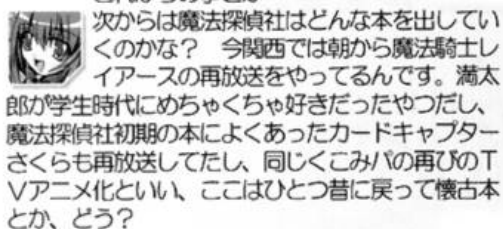 次からは魔法探偵社はどんな本を出してい
くのかな? 今関西では朝から魔法騎士レ
イアースの再放送をやってるんです。満太
郎が学生時代にめちゃくちゃ好きだったやつだし、
魔法探偵社初期の本によくあったカードキャプター
さくらも再放送してたし、同じくこみパの再びのT
Vアニメ化といい、ここはひとつ昔に戻って懐古本
とか、どう?